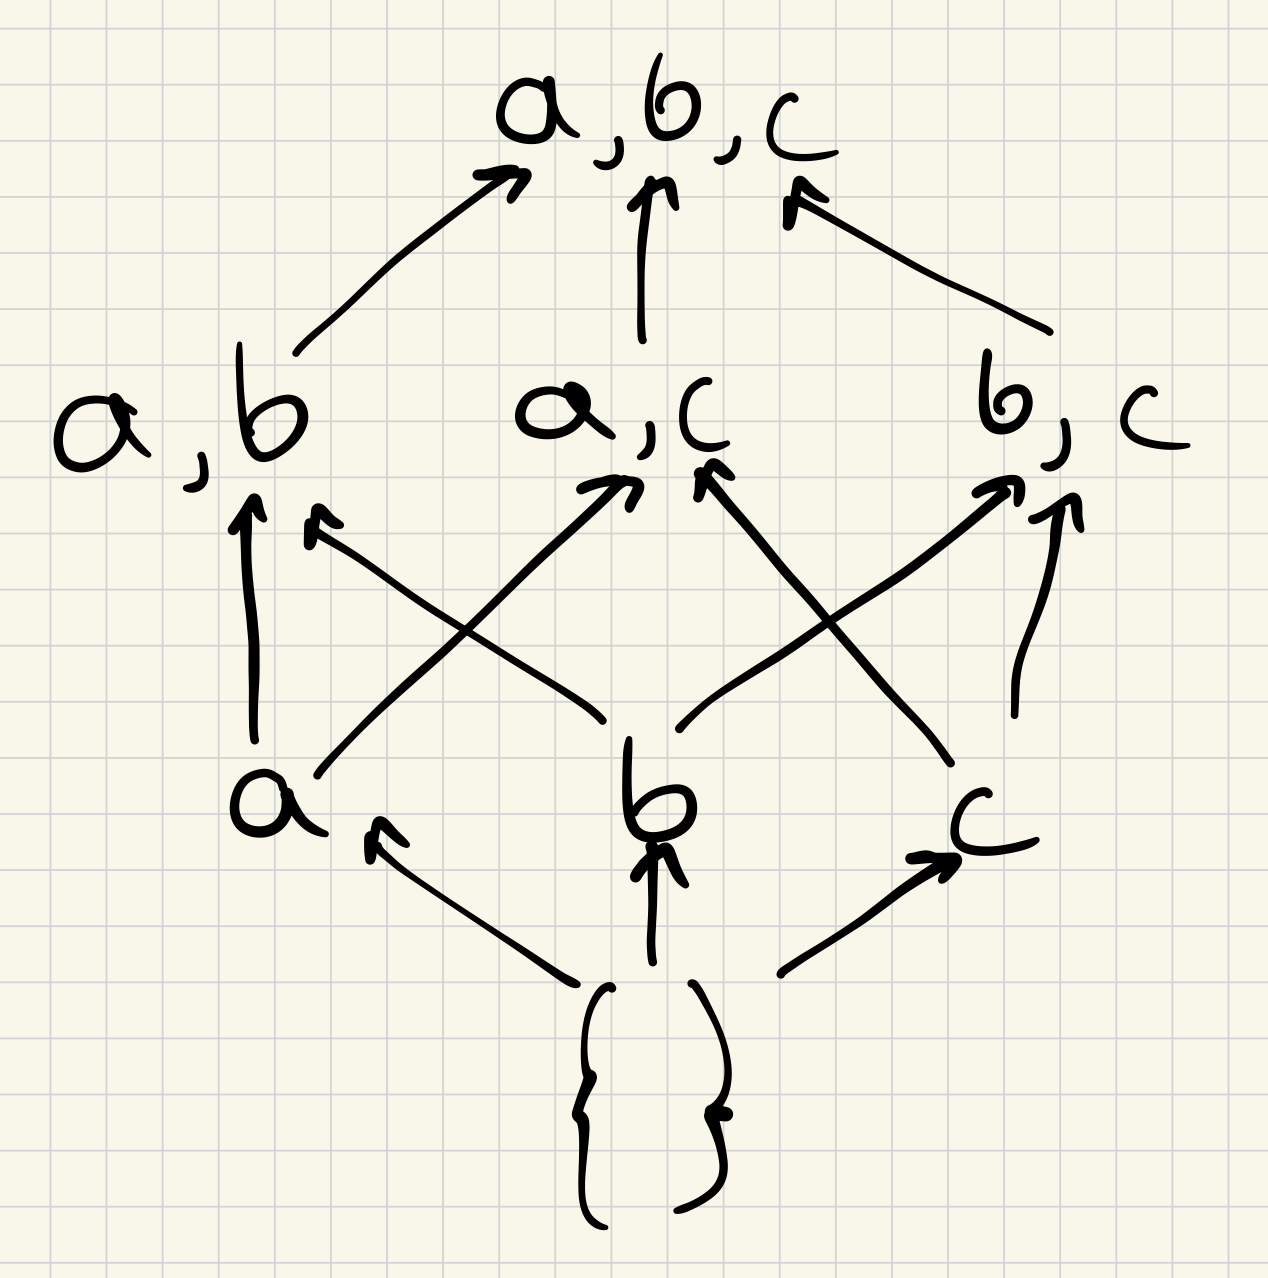 a,b,c
a,b a,c b,c
a b c
{ }